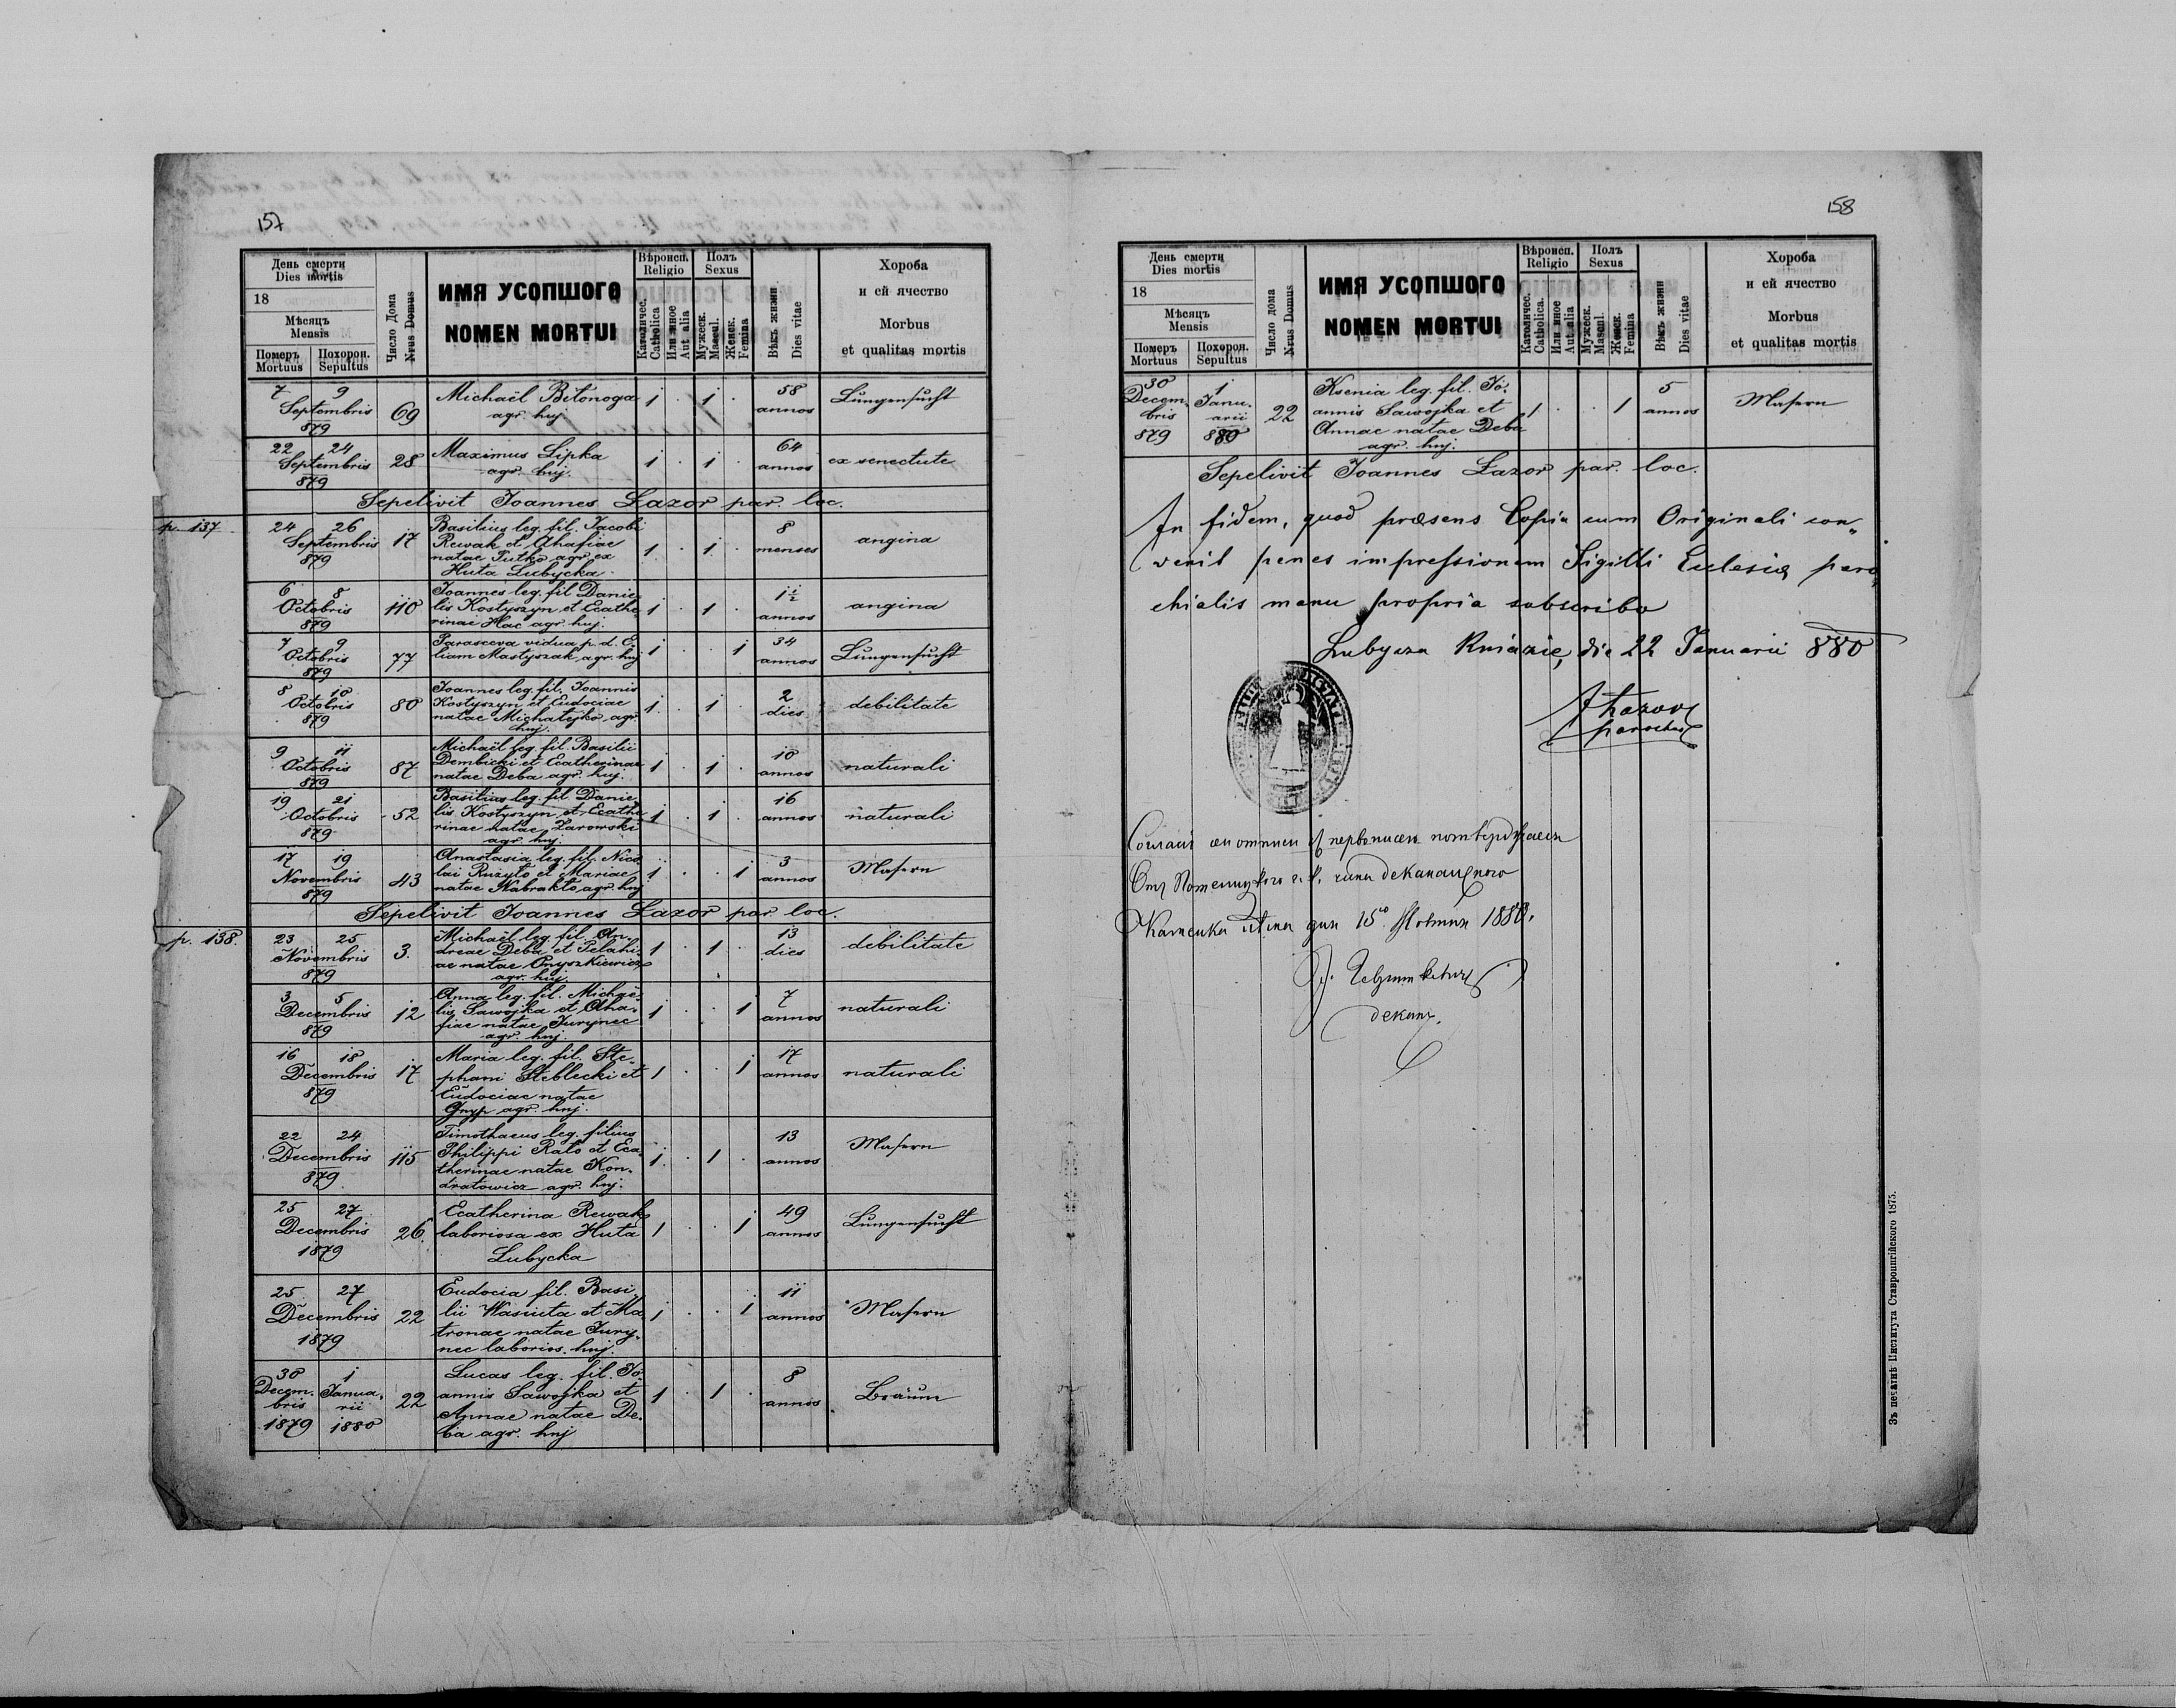 157
День смерти
Dies mortis
18
Мѣсяцъ
Mensis
Померъ
Mortuus
Похорон.
Sepultus
Число Дома
Nrus Domus
ИМЯ УСОПШОГО
NOMEN MORTUI
Вѣроисп.
Religio
Католичес.
Catholica
Или иное
Aut alia
Полъ
Sexus
Мужеск.
Mascul.
Женск.
Femina
Вѣкъ жизни
Dies vitae
Хороба
и ей ячество
Morbus
et qualitas mortis
7 9
Septembris
879
69
Michaël Bitonoga
agr. huj.
1 . 1 .
58
annos
Lungensucht
22 24
Septembris
879
28
Maximus Lipka
agr. huj.
1 . 1 .
64
annos
ex senectute
Sepelivit Joannes Łazor par. loc.
p. 137
24 26
Septembris
879
17
Basilius leg. fil. Jacobi
Rewak et Ahafiae
natae Putko agr. ex
Huta Lubycka
1 . 1 .
8
menses
angina
6 8
Octobris
879
110
Joannes leg. fil. Danie-
lis Kostyszyn et Ecathe-
rinae Hac agr. huj.
1 . 1 .
1 1/2
annos
angina
7 9
Octobris
879
77
Parasceva vidua p. d. E-
liam Mastyszak agr. huj
1 . . 1
34
annos
Lungensucht
8 10
Octobris
879
80
Joannes leg. fil. Joannis
Kostyszyn et Eudociae
natae Michatejko agr.
huj.
1 . 1 .
2
dies
debilitate
9 11
Octobris
879
87
Michaël leg. fil. Basilii
Dembicki et Ecatherinae
natae Deba agr. huj.
1 . 1 .
10
annos
naturali
19 21
Octobris
879
52
Basilius leg. fil. Danie-
lis Kostyszyn et Ecathe-
rinae natae Zarowski
agr. huj.
1 . 1 .
16
annos
naturali
17 19
Novembris
879
43
Anastasia leg. fil. Nico-
lai Rużyło et Mariae
natae Nabrakto, agr. huj
1 . . 1
3
annos
Masern
Sepelivit Joannes Łazor par. loc.
p. 138.
23 25
Novembris
879
3.
Michaël leg. fil. An-
dreae Deba et Pelahi-
ae natae Onyszkiewicz
agr. huj.
1 . 1 .
13
dies
debilitate
3 5
Decembris
879
12
Anna leg. fil. Michaë-
lis Sawojka et Aha-
fiae natae Jurynec
agr. huj.
1 . . 1
7
annos
naturali
16 18
Decembris
879
17
Maria leg. fil. Ste-
phani Steblecki et
Eudociae natae
Gnyp agr. huj.
1 . . 1
17
annos
naturali
22 24
Decembris
879
115
Timothaeus leg. filius
Philippi Rato et Eca-
therinae natae Kon-
dratowicz agr. huj.
1 . 1 .
13
annos
Masern
25 27
Decembris
1879
26.
Ecatherina Rewak
laboriosa ex Huta
Lubycka
1 . . 1
49
annos
Lungensucht
25 27
Decembris
1879
22
Eudocia fil. Basi-
lii Wasiuta et Ma-
tronae natae Jury-
nec laborios. huj.
1 . . 1
11
annos
Masern
30 1
Decem- Janua-
bris rii
1879 1880
22
Lucas leg. fil. Jo-
annis Sawojka et
Annae natae De-
ba agr. huj
1 . 1 .
8
annos
Bräune
158
День смерти
Dies mortis
18
Мѣсяцъ
Mensis
Померъ
Mortuus
Похорон.
Sepultus
Число дома
Nrus Domus
ИМЯ УСОПШОГО
NOMEN MORTUI
Вѣроисп.
Religio
Католичес.
Catholica.
Или иное
Aut alia
Полъ
Sexus
Мужеск.
Mascul.
Женск.
Femina
Вѣкъ жизни
Dies vitae
Хороба
и ей ячество
Morbus
et qualitas mortis
30 1
Decem- Janu-
bris arii
879 880
22
Ksenia leg. fil. Jo-
annis Sawojka et
Annae natae Deba
agr. huj.
1 . . 1
5
annos
Masern
Sepelivit Joannes Łazor par. loc.
In fidem, quod præsens Copia cum Originali con-
venit penes impressionem Sigilli Eclesiæ paro-
chialis manu propria subscribo
Lubycza Kniazie, die 22 Januarii 880
J Łazor
parochus
первописем потверджаеся
деканального
Каменка дня 15го 1880.
деканъ.
Зъ печатнѣ Института Ставропигійского 1875.